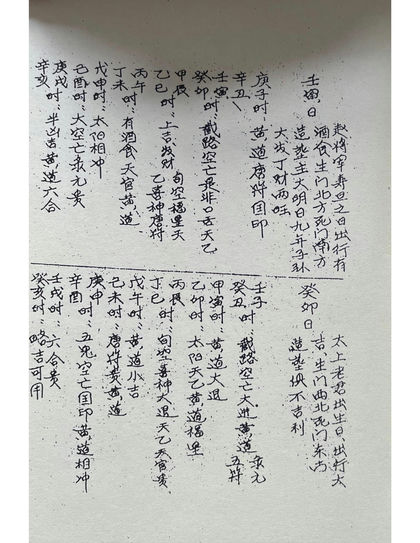 壬寅日
赵将军寿旦之日出行有
酒食生门北方死门南方
造塟主大明日九年子孙
大发丁财两旺
庚子时：黄道唐符国印
辛丑
壬寅时：截路空亡是非口舌天乙
癸卯
甲辰 旬空福星天
乙巳时：上吉发财 乙喜神唐符
丙午时：有酒食天官黄道
丁未
戊申时：太阳相冲
己酉时：大空亡彔元贵
庚戌时：
辛亥 半凶吉黄道六合
癸卯日
太上老君出生日出行大
吉生门西北死门东南
造塟俱不吉利
壬子时 截路空亡大进黄道 彔元
癸丑 五符
甲寅时：黄道大退
乙卯时：太阳天乙黄道福星
丙辰
丁巳时：旬空喜神大退天乙天官贵
戊午时：黄道小吉
己未时：唐符贵黄道
庚申
辛酉时：五鬼空亡国印黄道相冲
壬戌时：六合贵
癸亥时：略吉可用